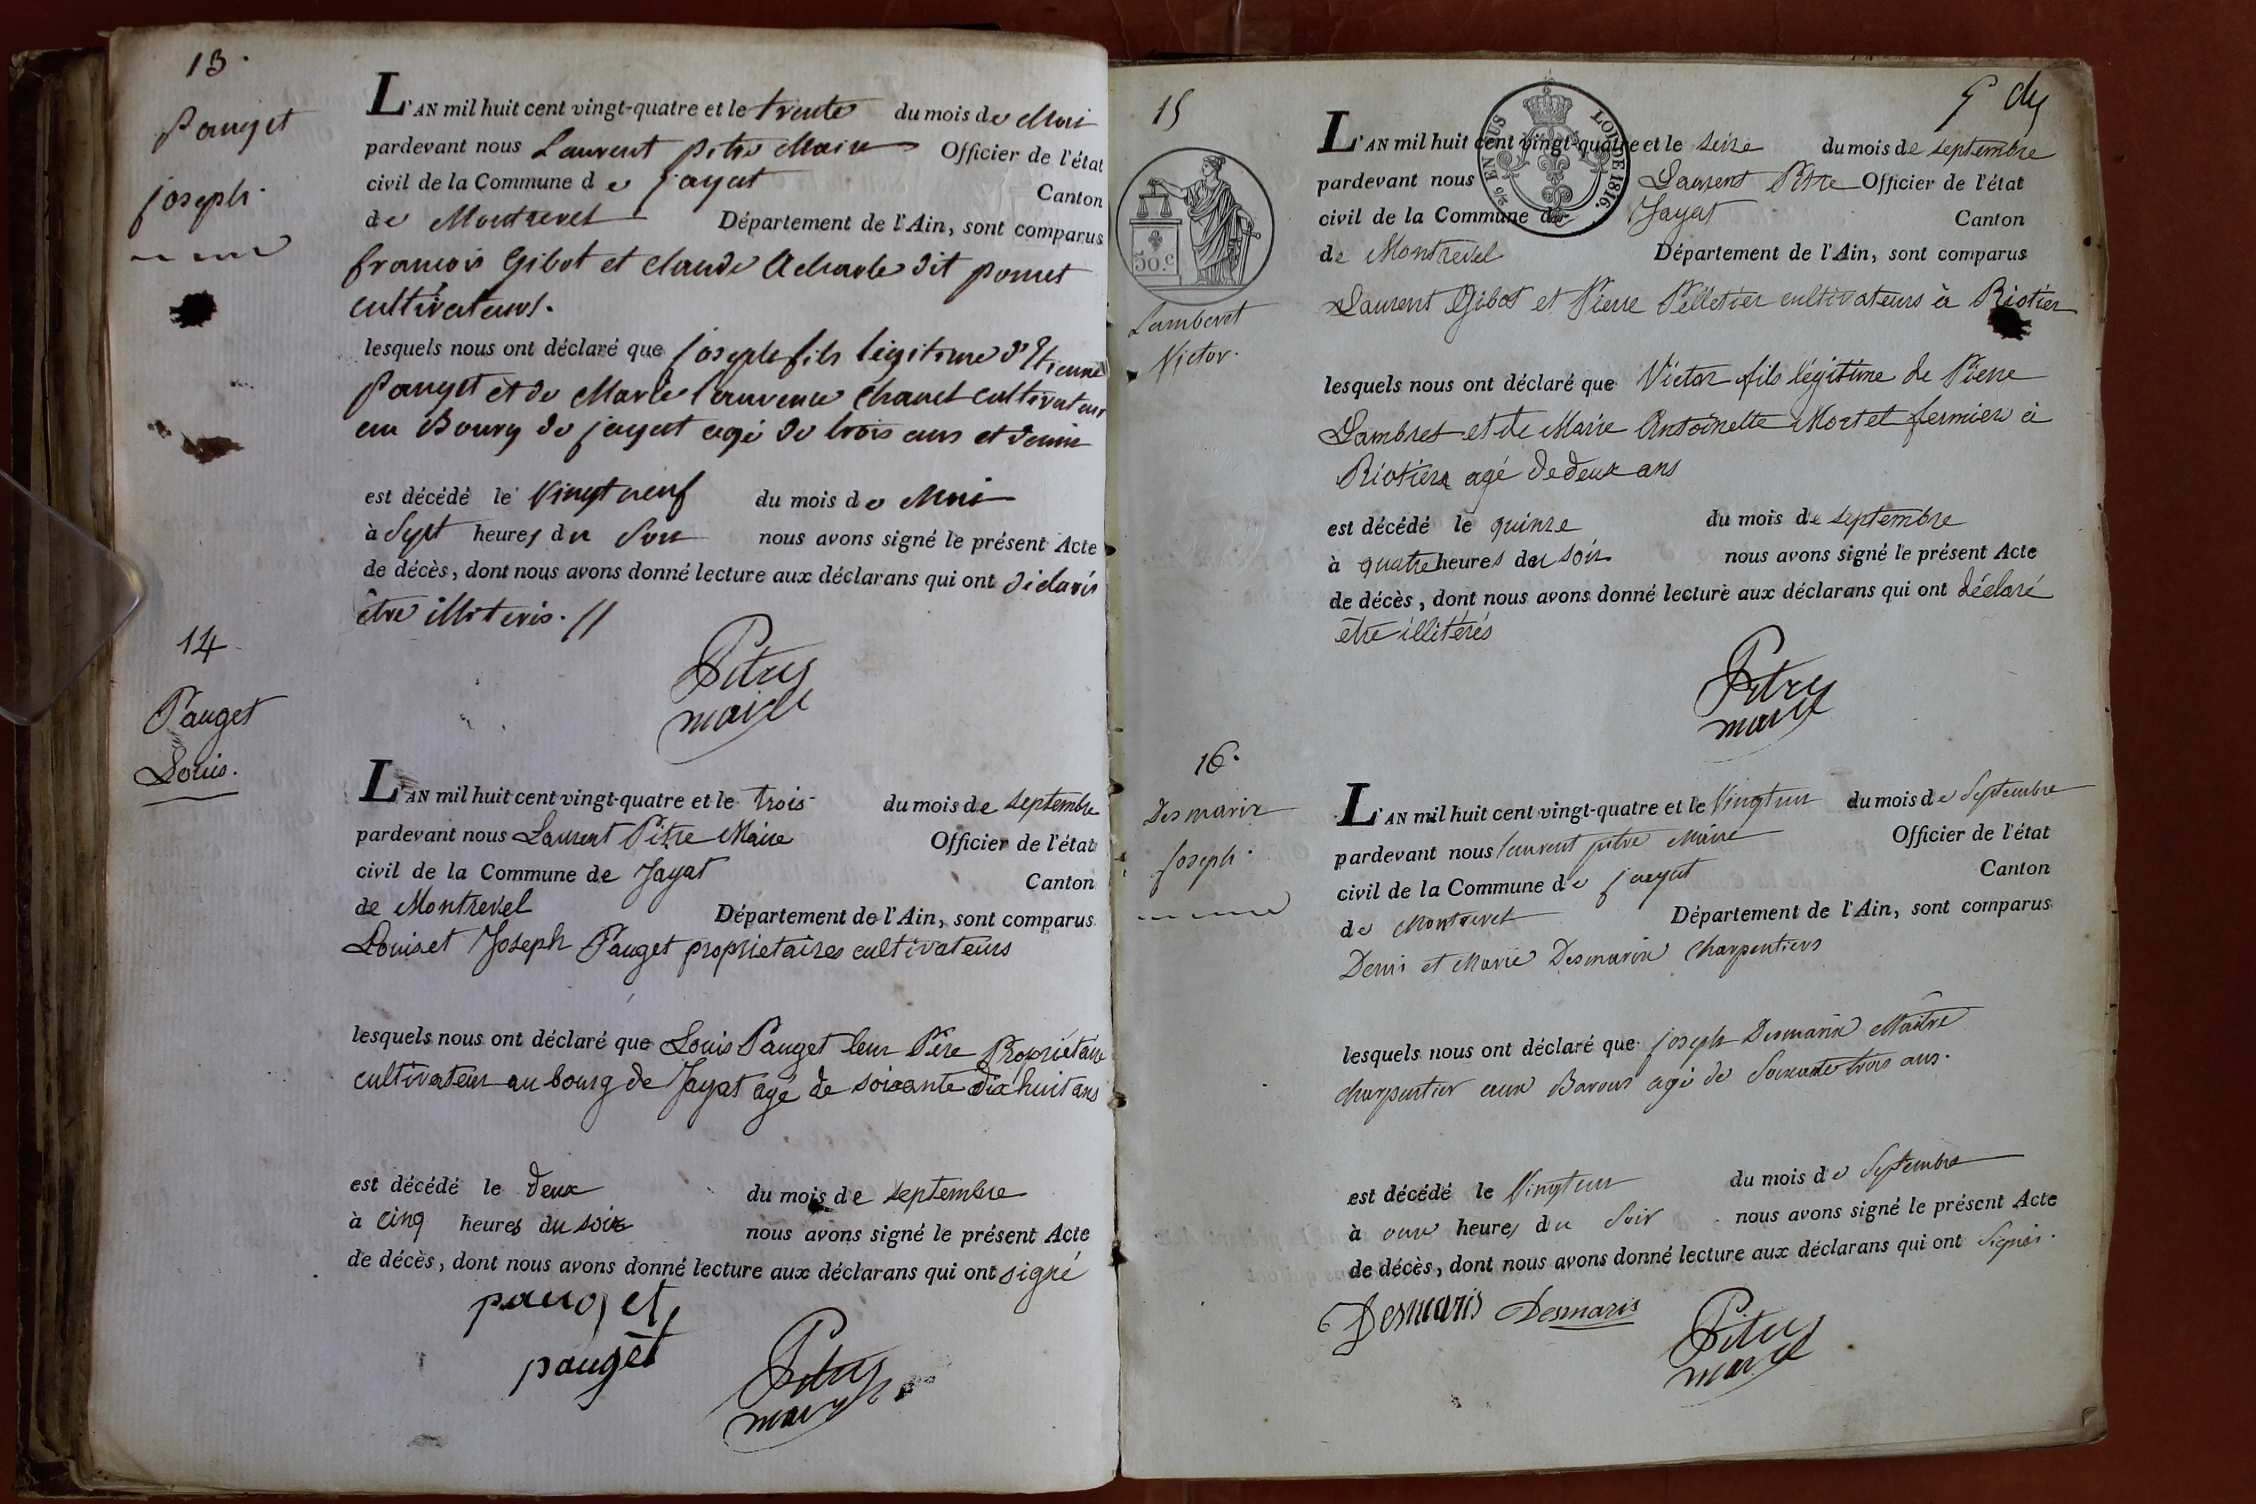 13.
Pauget
joseph.
L'AN mil huit cent vingt-quatre et le trente du mois de Mai
pardevant nous Laurent pitre Maire Officier de l'état
civil de la Commune de jayat Canton
de Montrevel Département de l'Ain, sont comparus
francois Gibot et claude dit pomet
cultivateurs.
lesquels nous ont déclaré que joseph fils légitime d'Etienne
Pauget et de Marie Laurence Chanel cultivateur
au Bourg de jayat agé de trois ans et demie
est décédé le Vingt neuf du mois de Mai
à Sept heures du Soir nous avons signé le présent Acte
de décès, dont nous avons donné lecture aux déclarans qui ont déclarés
être illiteris. //
Pitre
maire
14
Pauget
Louis.
L'AN mil huit cent vingt-quatre et le trois du mois de septembre
pardevant nous Laurent Pitre Maire Officier de l'état
civil de la Commune de Jayat Canton
de Montrevel Département de l'Ain, sont comparus
Louis et Joseph Pauget proprietaires cultivateurs
lesquels nous ont déclaré que Louis Pauget leur Père Propriétaire
cultivateur au bourg de Jayat agé de soixante dix huit ans
est décédé le deux du mois de septembre
à cinq heures du soir nous avons signé le présent Acte
de décès, dont nous avons donné lecture aux déclarans qui ont signé
pauget
pauget
Pitre
maire
15
5e
5 EN SUS
LOI DE 1816.
50.c
Lamberet
Victor.
L'AN mil huit cent vingt-quatre et le seize du mois de septembre
pardevant nous Laurent Pitre Officier de l'état
civil de la Commune de Jayat Canton
de Montrevel Département de l'Ain, sont comparus
Laurent Gibot et Pierre Pelletier cultivateurs à Riotier
lesquels nous ont déclaré que Victor fils légitime de Pierre
Lambret et de Marie Antoinette Mortel fermiers à
Riotier agé de deux ans
est décédé le quinze du mois de septembre
à quatre heures du soir nous avons signé le présent Acte
de décès, dont nous avons donné lecture aux déclarans qui ont déclaré
être illitérés
Pitre
maire
16.
Desmarix
joseph.
L'AN mil huit cent vingt-quatre et le Vingt un du mois de Septembre
pardevant nous laurent pitre Maire Officier de l'état
civil de la Commune de jayat Canton
de Montrevel Département de l'Ain, sont comparus
Denis et Marie Desmarix Charpentiers
lesquels nous ont déclaré que joseph Desmarix Maître
charpentier aux agé de Soixante trois ans.
est décédé le Vingt un du mois de Septembre
à onze heures du Soir nous avons signé le présent Acte
de décès, dont nous avons donné lecture aux déclarans qui ont Signés.
Desmaris Desmaris
Pitre
maire